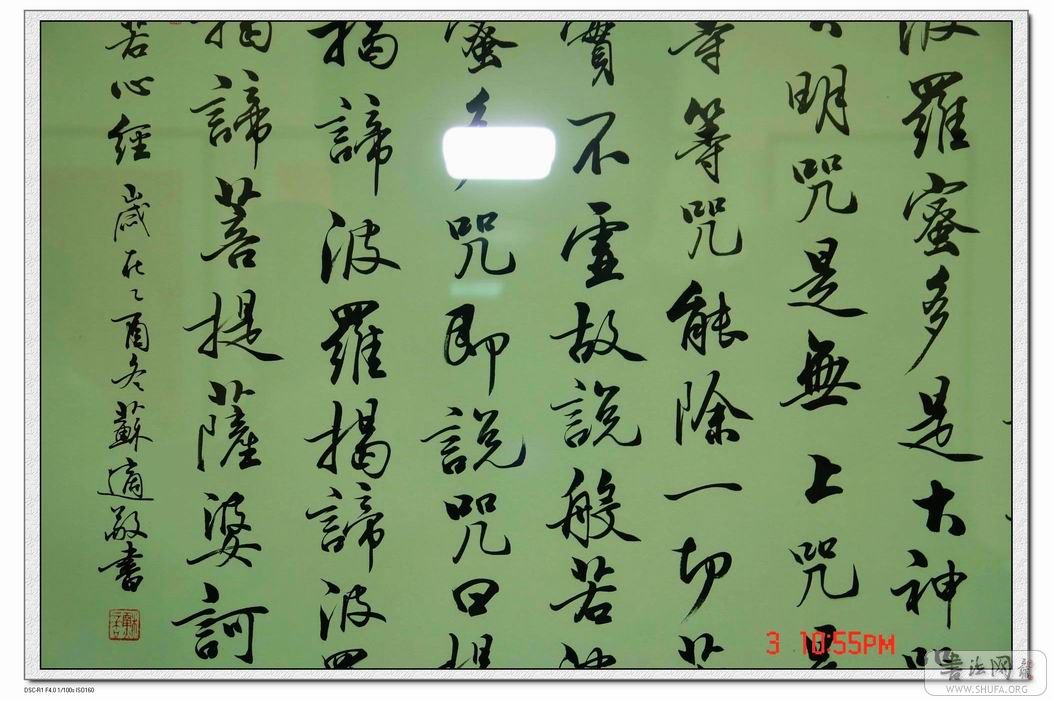 波羅蜜多是大神咒
明咒是無上咒是
等等咒能除一切苦
實不虛故說般若波
蜜多咒即說咒曰揭
揭諦波羅揭諦波羅
揭諦菩提薩婆訶
若心經 歲在乙酉冬蘇適敬書
3 10:55PM
書法网
WWW.SHUFA.ORG
DSC-R1 F4.0 1/100s ISO160